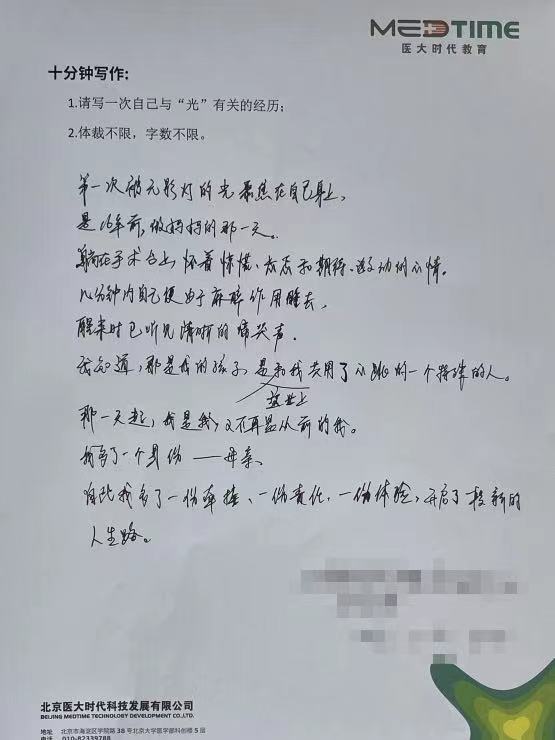 MEDTIME
医大时代教育
十分钟写作:
1.请写一次自己与“光”有关的经历;
2.体裁不限，字数不限。
第一次被无影灯的光聚焦在自己身上，
是16年前，做妈妈的那一天。
躺在手术台上，怀着惊慌、忐忑和期待、激动的心情。
几分钟内自己便由于麻醉作用睡去，
醒来时已听见清晰的啼哭声.
我知道，那是我的孩子，是和我共用了心跳的一个特殊的人。
这世上
那一天起，我是我，又不再是从前的我。
我多了一个身份——母亲、
自此我多了一份牵挂、一份责任，一份体验，开启了一段新的
人生路。
北京医大时代科技发展有限公司
BEIJING MEDTIME TECHNOLOGY DEVELOPMENT CO.,LTD.
地址 北京市海淀区学院路 38 号北京大学医学部科创楼 5 层
电话 010-82339788